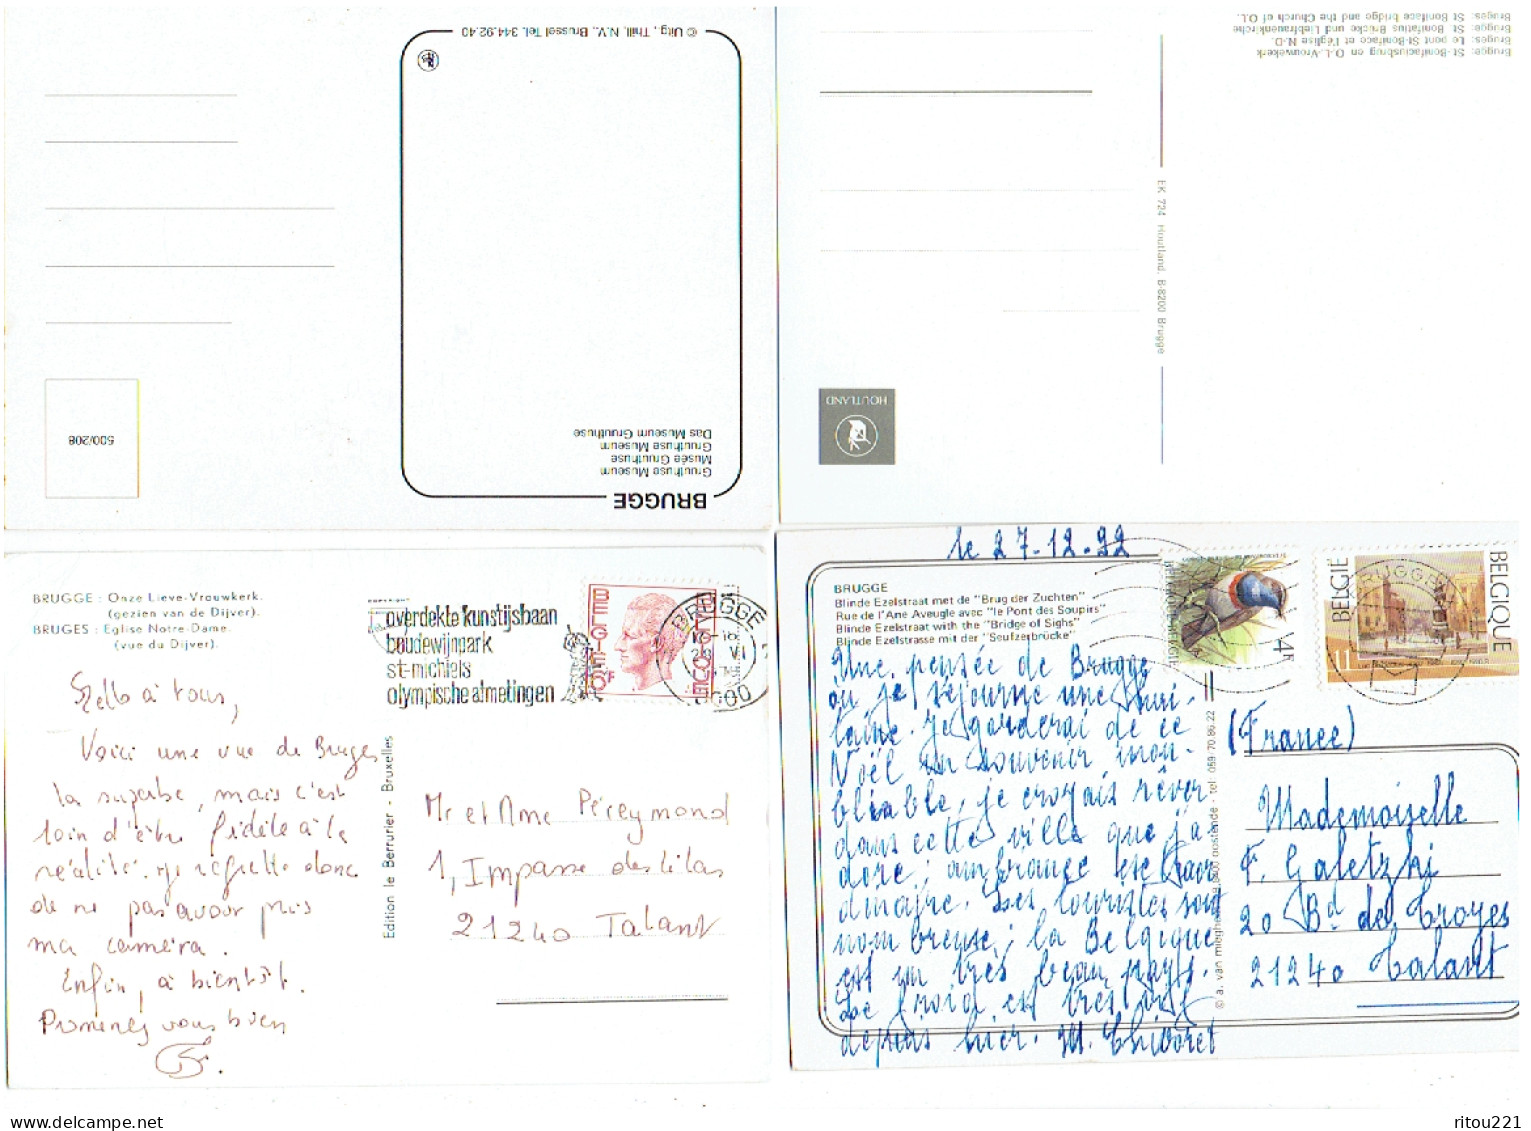 © Uitg. Thill, N.V., Brussel Tel. 344.92.40
500/208
Das Museum Gruuthuse
Gruuthuse Museum
Musée Gruuthuse
Gruuthuse Museum
BRUGGE
Brugge: St-Bonifaciusbrug en O.-L.-Vrouwekerk
Bruges: Le pont St-Boniface et l'église N.-D.
Brugge: St. Bonifatius Brücke und Liebfrauenkirche
Bruges: St Boniface bridge and the Church of O.L.
EK 724 Houtland, B-8200 Brugge
HOUTLAND
BRUGGE : Onze Lieve-Vrouwkerk.
(gezien van de Dijver).
BRUGES : Eglise Notre-Dame.
(vue du Dijver).
overdekte kunstijsbaan
boudewijnpark
st-michiels
olympische afmetingen
BELGIE
BELGIQUE
BRUGGE
Hello à tous,
Voici une vue de Bruges
la superbe, mais c'est
loin d'être fidèle à la
réalité. Je regrette donc
de ne pas avoir pris
ma caméra.
Enfin, à bientôt.
Prenez vous bien
Edition le Berrurier - Bruxelles
Mr et Mme Péreymond
1, Impasse des lilas
21240 Talant
le 27-12-92
BRUGGE
Blinde Ezelstraat met de "Brug der Zuchten"
Rue de l'Ane Aveugle avec "le Pont des Soupirs"
Blinde Ezelstraat with the "Bridge of Sighs"
Blinde Ezelstrasse mit der "Seufzerbrücke"
14F
BELGIE
BELGIQUE
11
BRUGGE
Une pensée de Brugge
où je séjourne une
Je garderai de ce
Noël un souvenir inou-
bliable, je croyais rêver
dans cette ville que j'a-
dore; ambiance
Les touristes sont
nombreux; la Belgique
est un très beau pays.
Le froid est très vif
depuis hier. M. Thivoret
© a. van mieghem 8400 oostende - tel : 059/70.86.22
(France)
Mademoiselle
F. Galetzki
20 Bd de Troyes
21240 Talant
ritou221